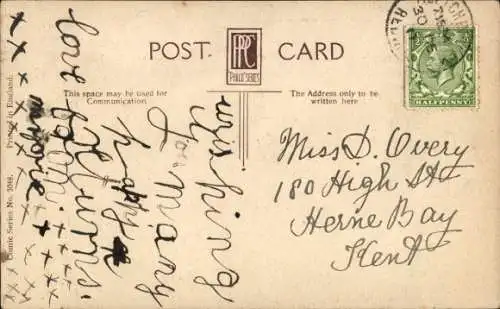 POST CARD
PPC
PHILCO SERIES
This space may be used for
Communication
The Address only to be
written here
HALFPENNY
Printed in England.
Comic Series No. 3088.
wishing
you many
happy
returns.
love
from
marjorie
x x x x x x x x x x
Miss D. Overy
180 High St
Herne Bay
Kent